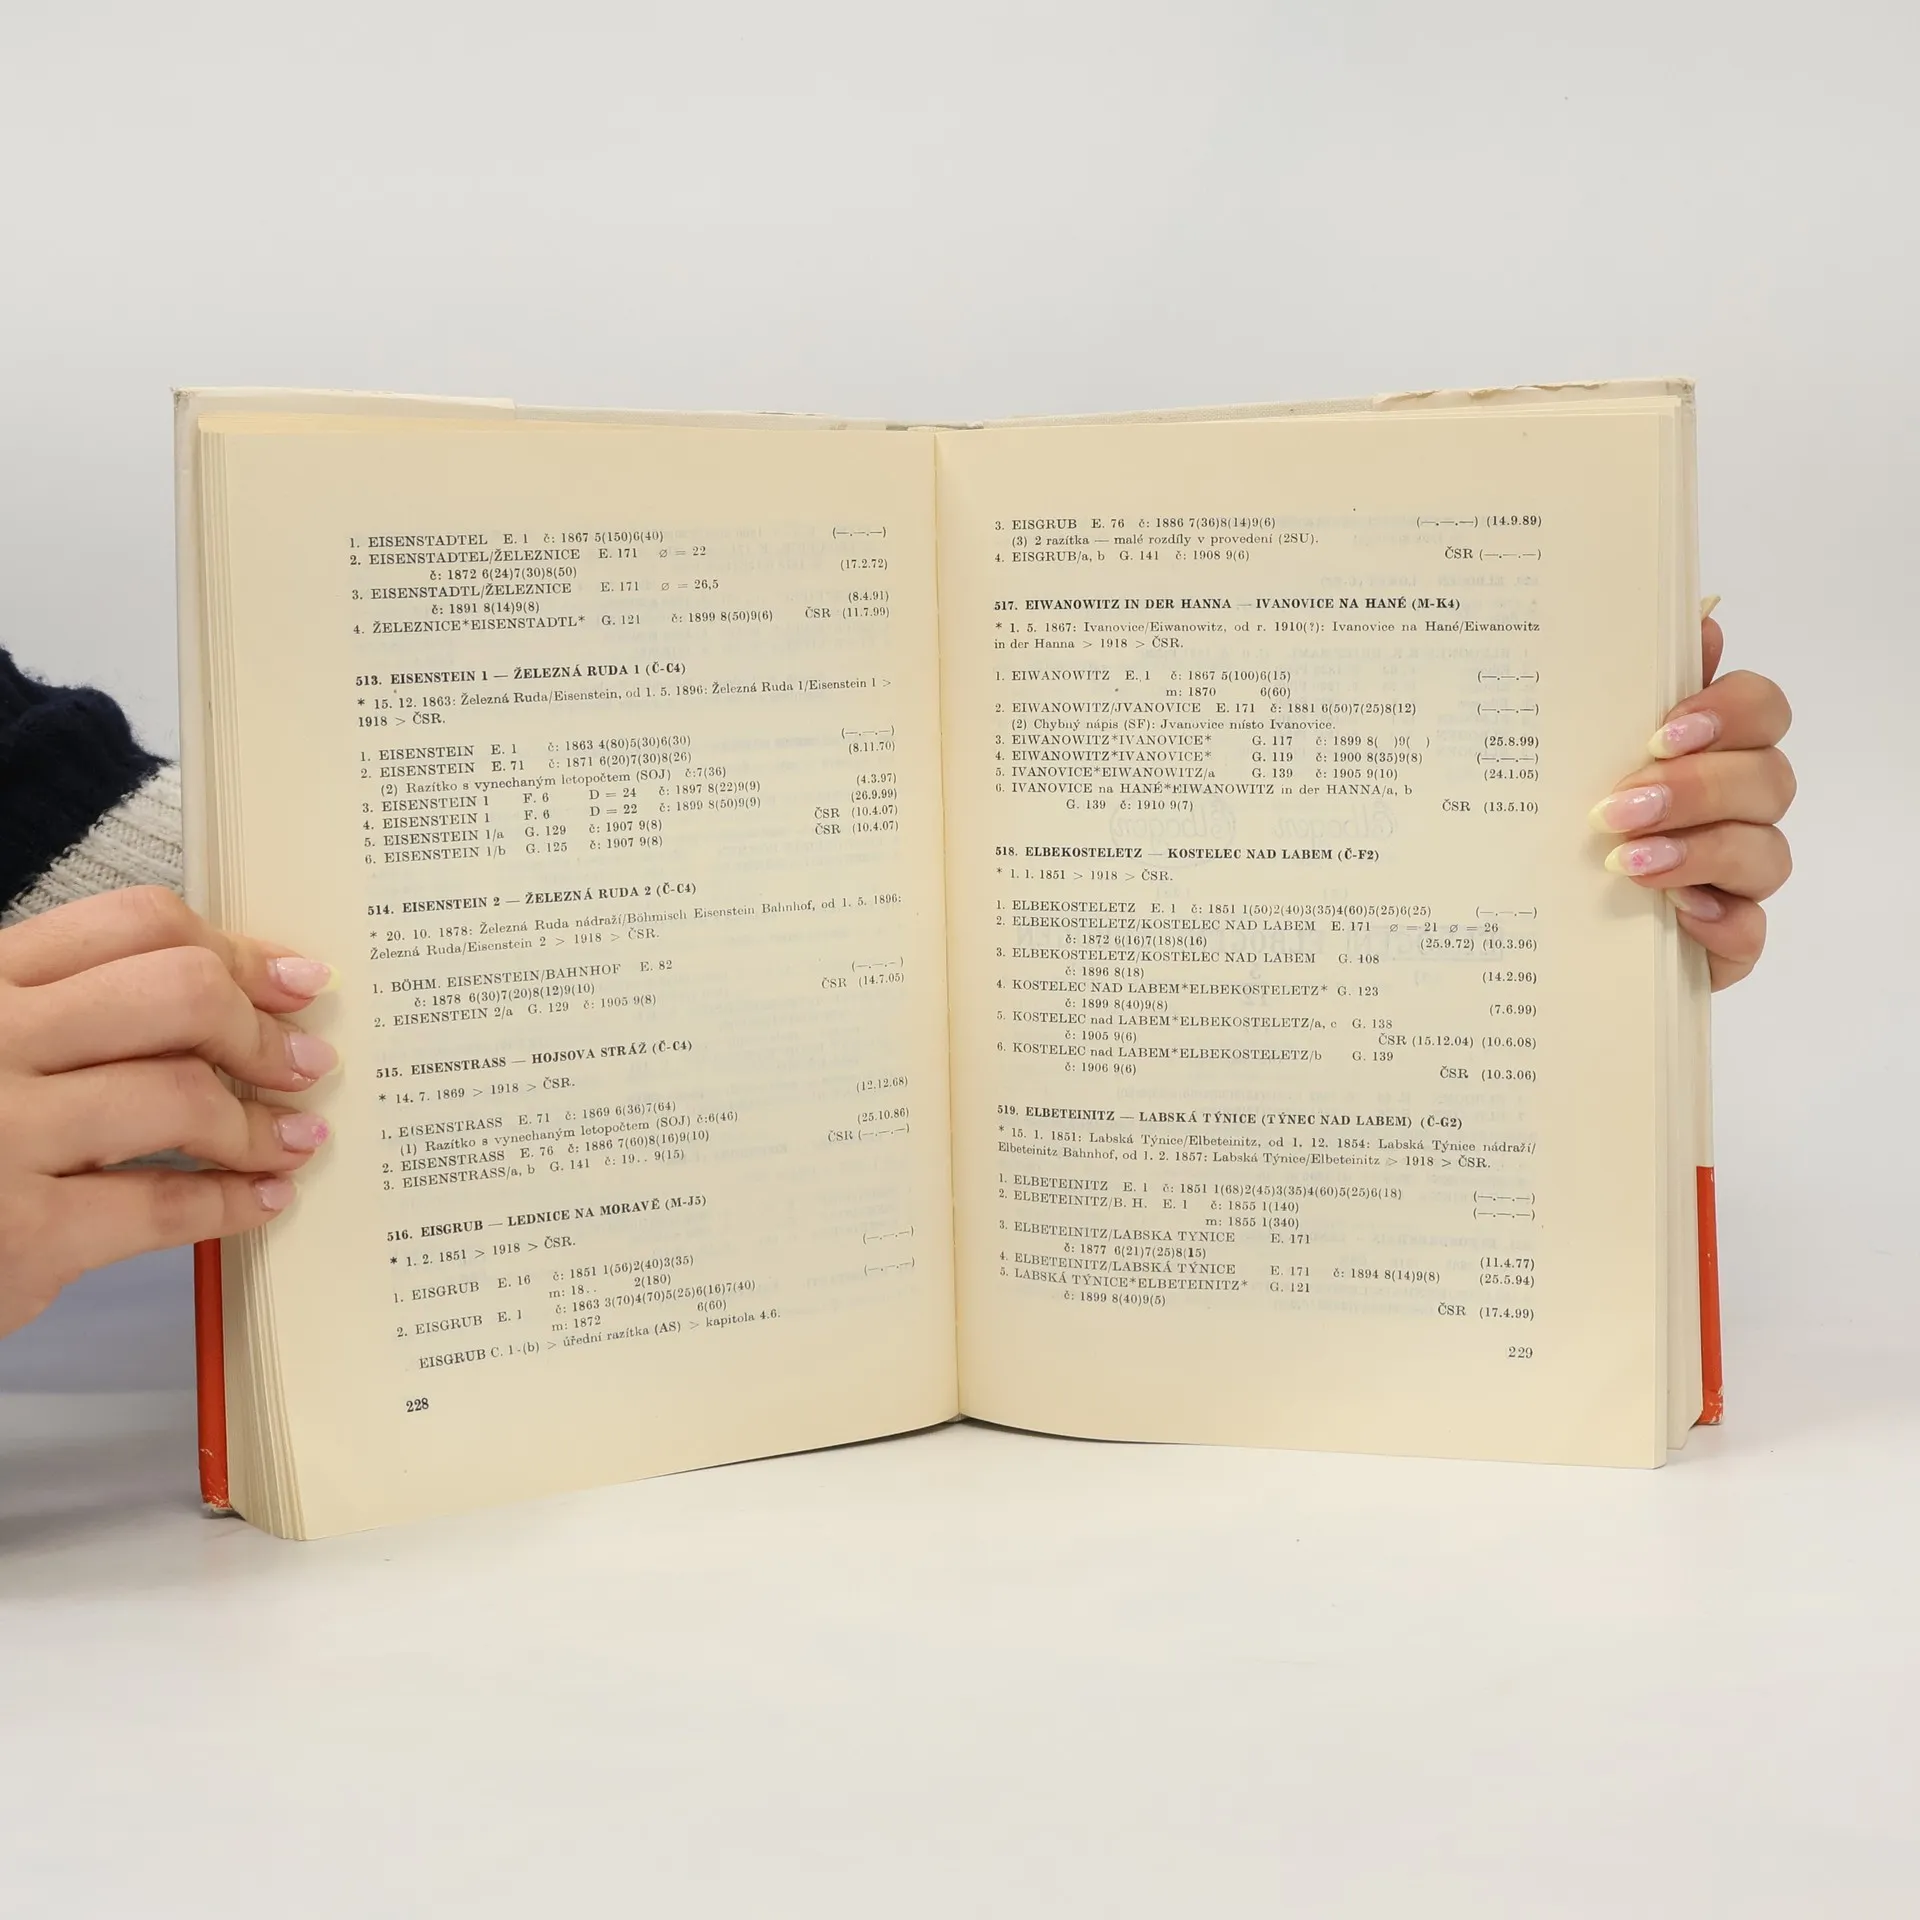 1. EISENSTADTEL E. 1 č: 1867 5(150)6(40) (—.—.—)
2. EISENSTADTEL/ŽELEZNICE E. 171 ⌀ = 22
č: 1872 6(24)7(30)8(50) (17.2.72)
3. EISENSTADTL/ŽELEZNICE E. 171 ⌀ = 26,5
č: 1891 8(14)9(8) (8.4.91)
4. ŽELEZNICE*EISENSTADTL* G. 121 č: 1899 8(50)9(6) ČSR (11.7.99)
513. EISENSTEIN 1 — ŽELEZNÁ RUDA 1 (Č-C4)
* 15. 12. 1863: Železná Ruda/Eisenstein, od 1. 5. 1896: Železná Ruda 1/Eisenstein 1 >
1918 > ČSR.
1. EISENSTEIN E. 1 č: 1863 4(80)5(30)6(30) (—.—.—)
2. EISENSTEIN E. 71 č: 1871 6(20)7(30)8(26) (8.11.70)
(2) Razítko s vynechaným letopočtem (SOJ) č:7(36)
3. EISENSTEIN 1 F. 6 D = 24 č: 1897 8(22)9(9) (4.3.97)
4. EISENSTEIN 1 F. 6 D = 22 č: 1899 8(50)9(9) (26.9.99)
5. EISENSTEIN 1/a G. 129 č: 1907 9(8) ČSR (10.4.07)
6. EISENSTEIN 1/b G. 125 č: 1907 9(8) ČSR (10.4.07)
514. EISENSTEIN 2 — ŽELEZNÁ RUDA 2 (Č-C4)
* 20. 10. 1878: Železná Ruda nádraží/Böhmisch Eisenstein Bahnhof, od 1. 5. 1896:
Železná Ruda/Eisenstein 2 > 1918 > ČSR.
1. BÖHM. EISENSTEIN/BAHNHOF E. 82 (—.—.—)
č: 1878 6(30)7(20)8(12)9(10)
2. EISENSTEIN 2/a G. 129 č: 1905 9(8) ČSR (14.7.05)
515. EISENSTRASS — HOJSOVA STRÁŽ (Č-C4)
* 14. 7. 1869 > 1918 > ČSR.
1. EISENSTRASS E. 71 č: 1869 6(36)7(64) (12.12.68)
(1) Razítko s vynechaným letopočtem (SOJ) č:6(46)
2. EISENSTRASS E. 76 č: 1886 7(60)8(16)9(10) (25.10.86)
3. EISENSTRASS/a, b G. 141 č: 19.. 9(15) ČSR (—.—.—)
516. EISGRUB — LEDNICE NA MORAVĚ (M-J5)
* 1. 2. 1851 > 1918 > ČSR.
1. EISGRUB E. 16 č: 1851 1(56)2(40)3(35) (—.—.—)
m: 18.. 2(180)
2. EISGRUB E. 1 č: 1863 3(70)4(70)5(25)6(16)7(40) (—.—.—)
m: 1872 6(60)
EISGRUB C. 1-(b) > úřední razítka (AS) > kapitola 4.6.
228
3. EISGRUB E. 76 č: 1886 7(36)8(14)9(6) (—.—.—) (14.9.89)
(3) 2 razítka — malé rozdíly v provedení (2SU).
4. EISGRUB/a, b G. 141 č: 1908 9(6) ČSR (—.—.—)
517. EIWANOWITZ IN DER HANNA — IVANOVICE NA HANÉ (M-K4)
* 1. 5. 1867: Ivanovice/Eiwanowitz, od r. 1910(?): Ivanovice na Hané/Eiwanowitz
in der Hanna > 1918 > ČSR.
1. EIWANOWITZ E. 1 č: 1867 5(100)6(15) (—.—.—)
m: 1870 6(60)
2. EIWANOWITZ/JVANOVICE E. 171 č: 1881 6(50)7(25)8(12) (—.—.—)
(2) Chybný nápis (SF): Jvanovice místo Ivanovice.
3. EIWANOWITZ*IVANOVICE* G. 117 č: 1899 8( )9( ) (25.8.99)
4. EIWANOWITZ*IVANOVICE* G. 119 č: 1900 8(35)9(8) (—.—.—)
5. IVANOVICE*EIWANOWITZ/a G. 139 č: 1905 9(10) (24.1.05)
6. IVANOVICE na HANÉ*EIWANOWITZ in der HANNA/a, b
G. 139 č: 1910 9(7) ČSR (13.5.10)
518. ELBEKOSTELETZ — KOSTELEC NAD LABEM (Č-F2)
* 1. 1. 1851 > 1918 > ČSR.
1. ELBEKOSTELETZ E. 1 č: 1851 1(50)2(40)3(35)4(60)5(25)6(25) (—.—.—)
2. ELBEKOSTELETZ/KOSTELEC NAD LABEM E. 171 ⌀ = 21 ⌀ = 26
č: 1872 6(16)7(18)8(16) (25.9.72) (10.3.96)
3. ELBEKOSTELETZ/KOSTELEC NAD LABEM G. 108
č: 1896 8(18) (14.2.96)
4. KOSTELEC NAD LABEM*ELBEKOSTELETZ* G. 123
č: 1899 8(40)9(8) (7.6.99)
5. KOSTELEC nad LABEM*ELBEKOSTELETZ/a, c G. 138
č: 1905 9(6) ČSR (15.12.04) (10.6.08)
6. KOSTELEC nad LABEM*ELBEKOSTELETZ/b G. 139
č: 1906 9(6) ČSR (10.3.06)
519. ELBETEINITZ — LABSKÁ TÝNICE (TÝNEC NAD LABEM) (Č-G2)
* 15. 1. 1851: Labská Týnice/Elbeteinitz, od 1. 12. 1854: Labská Týnice nádraží/
Elbeteinitz Bahnhof, od 1. 2. 1857: Labská Týnice/Elbeteinitz > 1918 > ČSR.
1. ELBETEINITZ E. 1 č: 1851 1(68)2(45)3(35)4(60)5(25)6(18) (—.—.—)
2. ELBETEINITZ/B. H. E. 1 č: 1855 1(140) (—.—.—)
m: 1855 1(340)
3. ELBETEINITZ/LABSKA TYNICE E. 171
č: 1877 6(21)7(25)8(15) (11.4.77)
4. ELBETEINITZ/LABSKÁ TÝNICE E. 171 č: 1894 8(14)9(8) (25.5.94)
5. LABSKÁ TÝNICE*ELBETEINITZ* G. 121
č: 1899 8(40)9(5) ČSR (17.4.99)
229